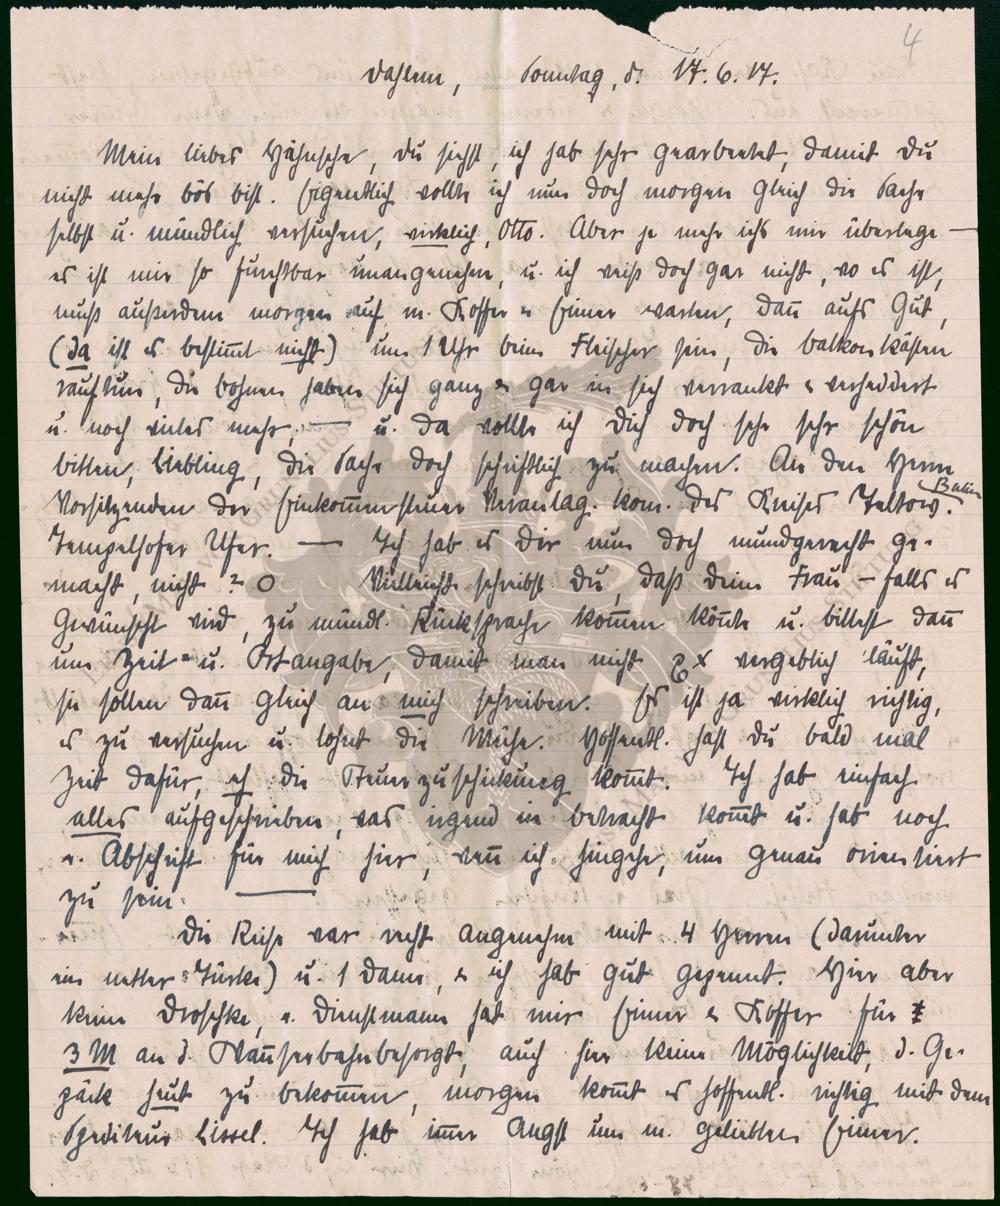 4
Dahlem, Sonntag, d. 17. 6. 17.
Mein liebes Hähnsche, du siehst, ich hab sehr gearbeitet, damit du
nicht mehr bös bist. Eigentlich wollte ich nun doch morgen gleich die Sache
selbst u. mündlich versuchen, wirklich, Otto. Aber je mehr ichs mir überlege —
es ist mir so furchtbar unangenehm, u. ich weiß doch gar nicht, wo es ist,
muß außerdem morgen auf m. Koffer u Eimer warten, dan̄ aufs Gut,
(da ist es bestim̄t nicht) um 1 Uhr beim Fleischer sein, die Balkonkästen
rauftun, die Bohnen haben sich ganz u gar in sich verrankt u verheddert
u. noch vieles mehr, — u. da wollte ich Dich doch sehr sehr schön
bitten, Liebling, die Sache doch schriftlich zu machen. An den Herrn
Vorsitzenden der Einkommensteuer Veranlag. Kom. des Kreises Teltow. Berlin
Tempelhofer Ufer. — Ich hab es Dir nun doch mundgerecht ge-
macht, nicht? O Vielleicht schreibst du, daß deine Frau — falls es
gewünscht wird, zu mündl. Rücksprache kom̄en kön̄te u. bittest dan̄
um Zeit- u. Ortangabe, damit man nicht x vergeblich läuft,
sie sollen dan̄ gleich an mich schreiben. Es ist ja wirklich richtig,
es zu versuchen u. lohnt die Mühe. Hoffentl. hast du bald mal
Zeit dafür, eh die Steuerzuschickung kom̄t. Ich hab einfach
alles aufgeschrieben, was irgend in betracht kom̄t u. hab noch
e. Abschrift für mich hier, wen̄ ich hingehe, um genau orientiert
zu sein. —
Die Reise war recht angenehm mit 4 Herren (darunter
ein netter Türke) u. 1 Dame, u ich hab gut gepennt. Hier aber
keine Droschke, e. Dienstmann hat mir Eimer u Koffer für
3 M an d. Wan̄seebahn besorgt, auch hier keine Möglichkeit, d. Ge-
päck heut zu bekom̄en, morgen kom̄t es hoffentl. richtig mit dem
Spediteur Lissel. Ich hab im̄er Angst um m. geliebten Eimer.